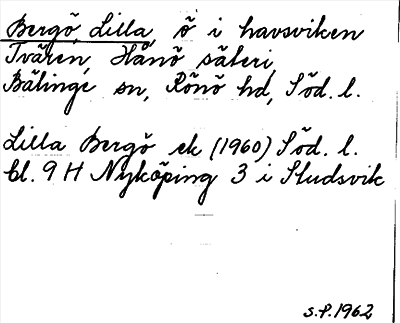 Bergö, Lilla, ö i havsviken
Tvären, Hånö säteri,
Bälinge sn, Rönö hd, Söd. l.
Lilla Bergö ek (1960) Söd. l.
bl. 9 H Nyköping 3 i Studsvik
S.P. 1962